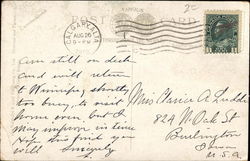 POST CARD
CALGARY, ALTA
AUG 26
5 - PM
am still on deck
and will return
to Winnipeg shortly
too busy to visit
home even but I
may improve in time
this find you
well Sincerely
Miss Clarice A.
824 N Oak St
Burlington
Iowa
U.S.A.